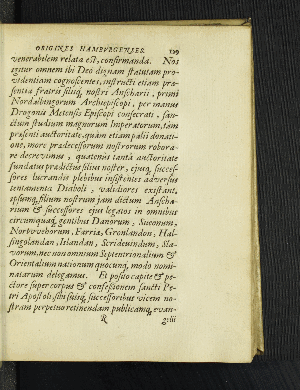 ORIGINES HAMBURGENSES. 129
venerabilem relata est, confirmanda. Nos
igitur omnem ibi Deo dignam statutam pro-
videntiam cognoscentes, instructi etiam præ-
sentia fratris filiiq; nostri Anscharii, primi
Nordalbingorum Archiepiscopi, per manus
Drogonis Metensis Episcopi consecrati, san-
ctum studium magnorum Imperatorum, tam
præsenti auctoritate, quam etiam palii donati-
one, more prædecessorum nostrorum robora-
re decrevimus, quatenus tanta auctoritate
fundatus prædictus filius noster, ejusq; succes-
sores lucrandis plebibus insistentes adversus
tentamenta Diaboli, validiores existant,
ipsumq; filium nostrum jam dictum Anscha-
rium & successores ejus legatos in omnibus
circumquaq; gentibus Danorum, Sueonum,
Nortvvehorum, Farriæ, Gronlandon, Hal-
singolandan, Islandan, Scridevindum, Sla-
vorum, nec non omnium Septentrionalium &
Orientalium nationum quocunq; modo nomi-
natarum delegamus. Et posito capite & pe-
ctore super corpus & confessionem sancti Pe-
tri Apostoli, sibi suisq; successoribus vicem no-
stram perpetuo retinendam publicamq; evan-
R gelii